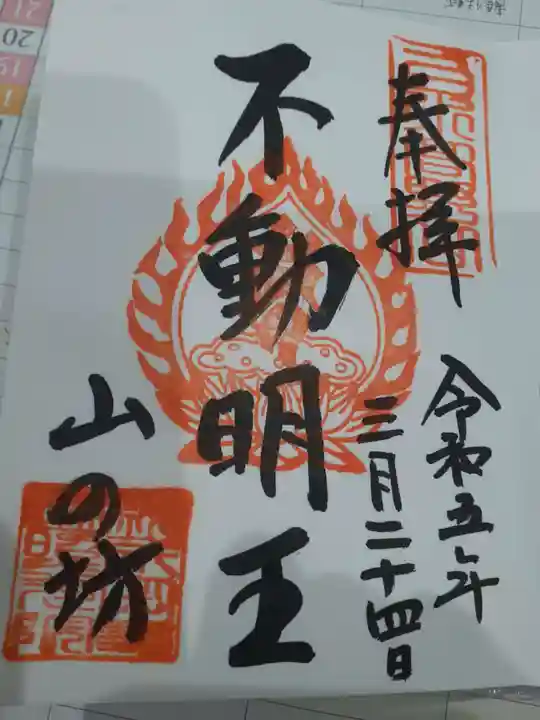 奉拝
令和五年
三月二十四日
不動明王
山の坊
20
19